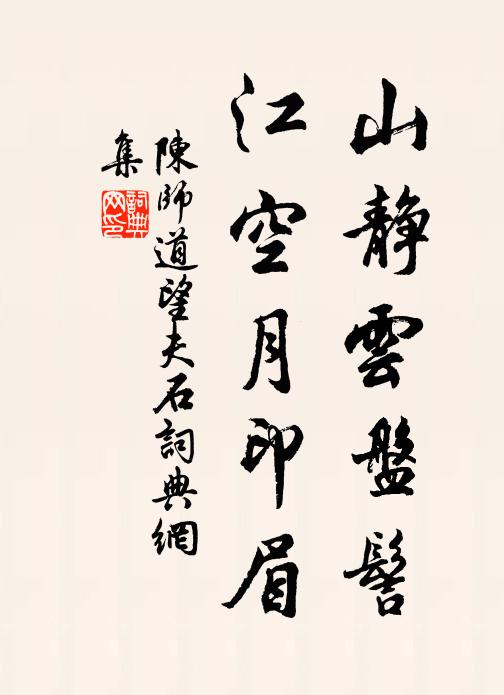 山静雲盤髻
江空月印眉
陳師道望夫石詞典網
集
詞典
网印